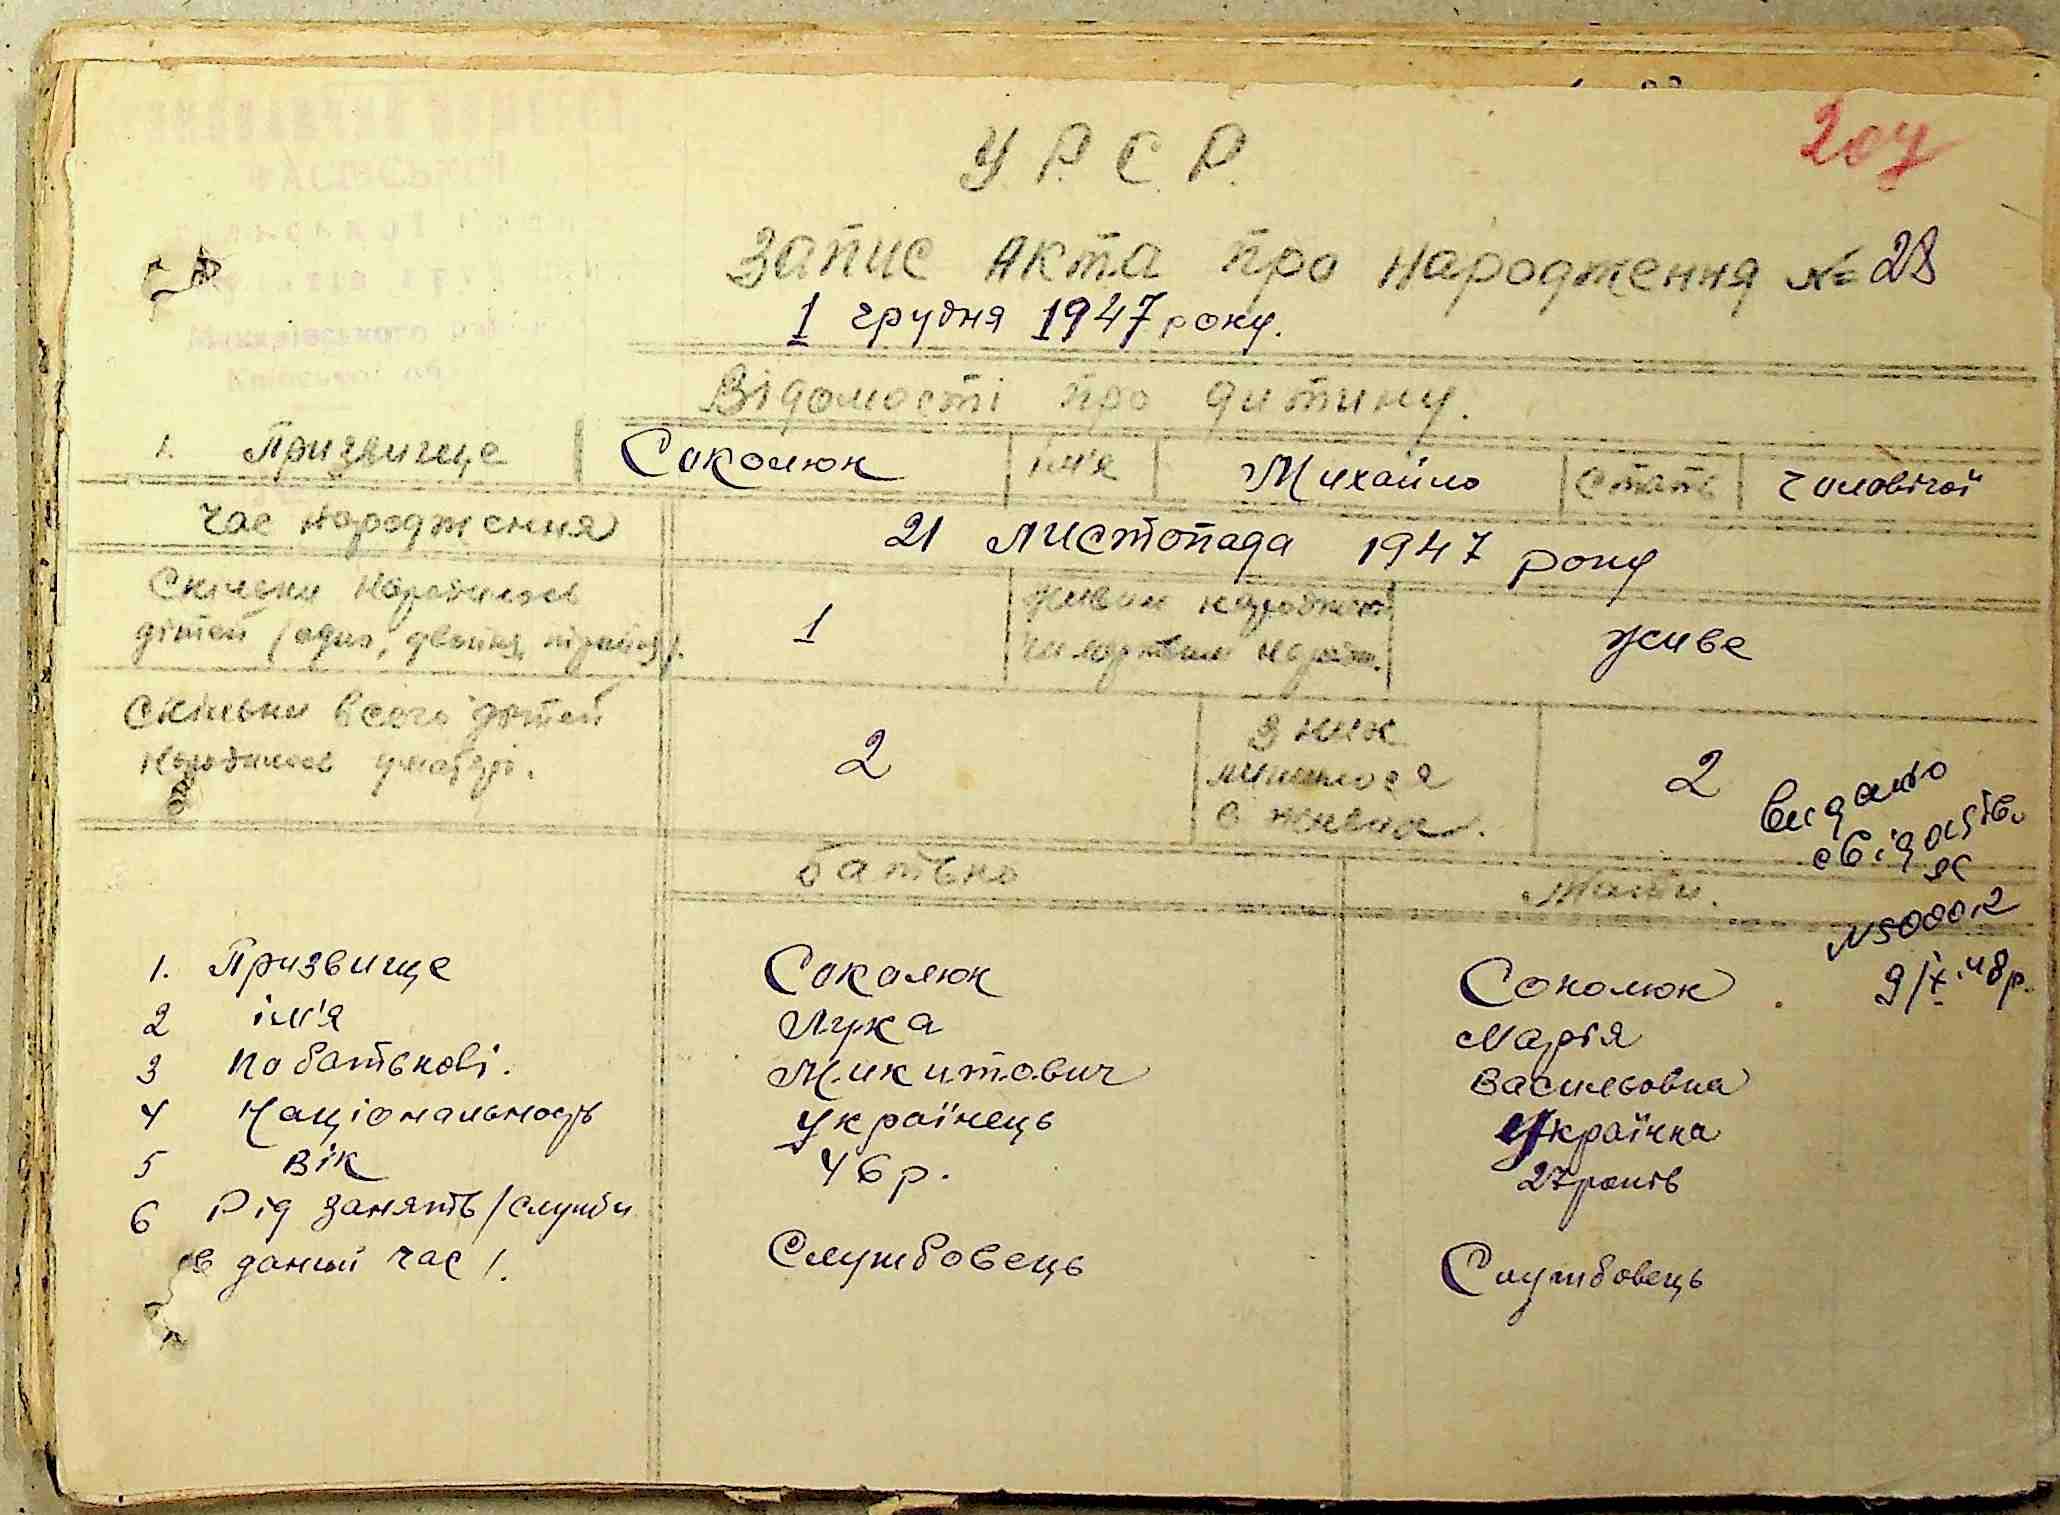 207
У. Р. С. Р.
Запис Акта про народження № 28
1 грудня 1947 року.
Макарівського
Київської
Відомості про дитину.
1. Призвище Соколюк ім'я Михайло Стать чоловічої
Час народження 21 листопада 1947 року
Скільки народилось
дітей (одно, двойня, тройня). 1 живим народжено чи мертвим народж. живе
Скільки всего дітей
народилось у матері. 2 З них лишилося в живих. 2
видано
свідоцтв.
ЯС
N 500012
9/ІХ.48р.
батько Мати.
1. Призвище Соколюк Соколюк
2 ім'я Лука Марія
3 по батькові. Микитович Васильовна
4 Національность Українець Українка
5 вік 46 р. 27 років
6 Рід занять /служби
в даний час/. Службовець Службовець